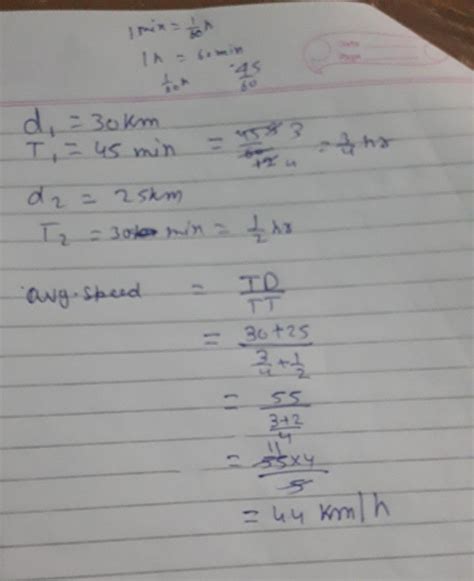 1 min = 1/60 h
1h = 60 min
1/60h 45/60
Date
Page
d₁ = 30km
T₁ = 45 min = 45 9 3/60 12 4 = 3/4 hr
d₂ = 25km
T₂ = 30 min = 1/2 hr
avg. speed = TD/TT
= 30+25/3/4+1/2
= 55/3+2/4
= 11 55×4/5
= 44 km/h